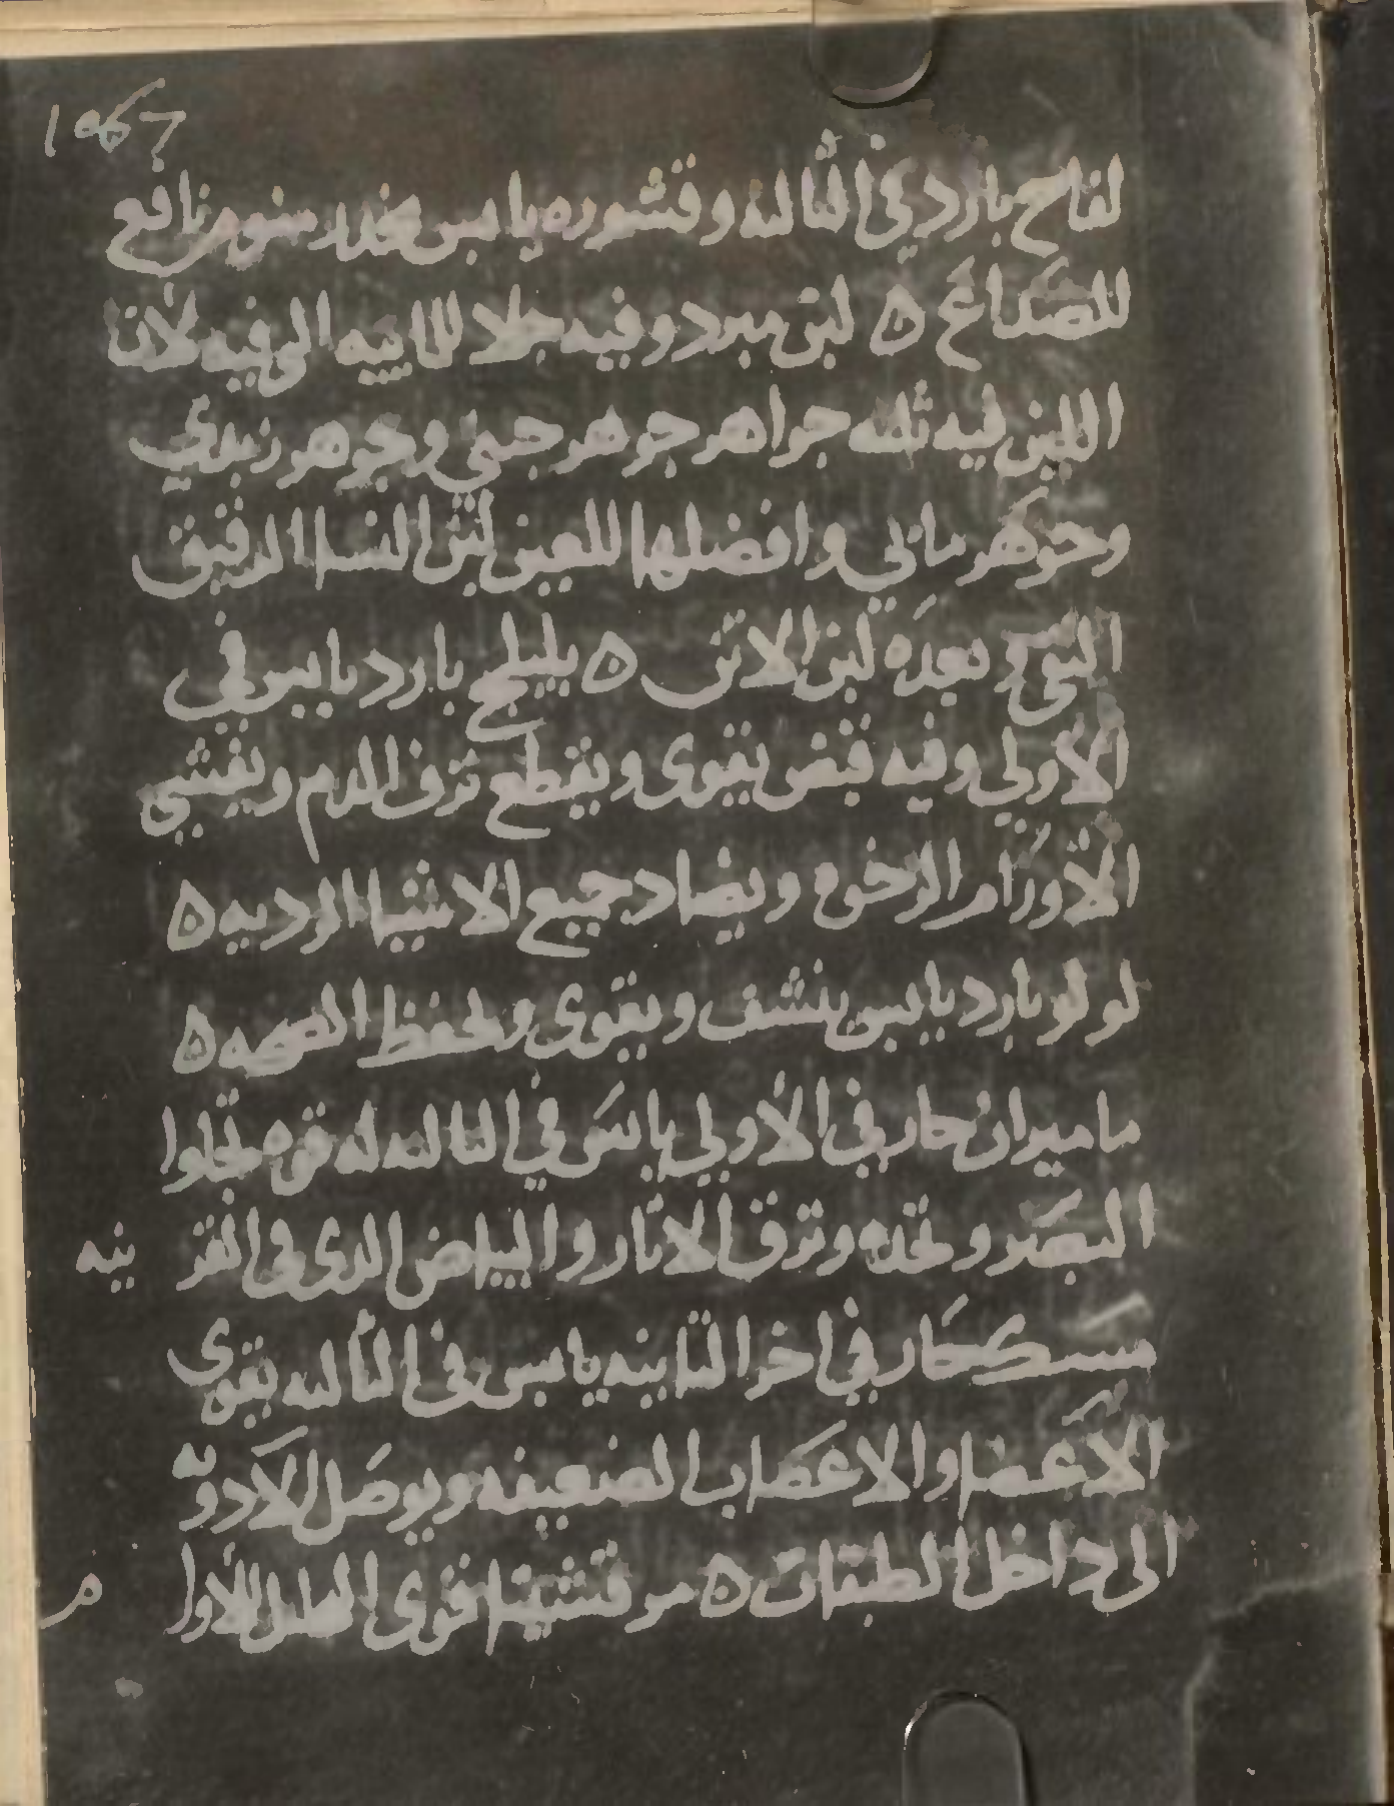 1067
لفاح بارد في الثالثه وقشوره يابس مخدر منوم نافع
للصداع ٥ لبن مبرد وفيه جلا للمائيه التي فيه لان
اللبن فيه ثلثه جواهر جوهر جبني وجوهر زبدي
وجوهر مائي وافضلها للعين لبن النسا الرقيق
النقي وبعده لبن الاتن ٥ بليلج بارد يابس في
الاولي وفيه قبض يقوى ويقطع نزف الدم ويفشي
الاورام الرخوه ويضاد جميع الاشيا الرديه ٥
لولو بارد يابس ينشف ويقوى ويحفظ الصحه ٥
ماميران حار في الاولي يابس في الثالثه له قوه تجلوا
البصر وتحده وترق الاثار والبياض الذى في القر
نيه
مسك حار في اخر الثانيه يابس في الثالثه يقوى
الاعضا والاعصاب الضعيفه ويوصل الادويه
الى داخل الطبقات ٥ مرقشيثا قوى التحليل للاورا
م